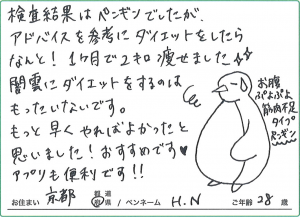 検査結果はペンギンでしたが、
アドバイスを参考にダイエットをしたら
なんと！1ヶ月で2キロ痩せました✨
闇雲にダイエットをするのは
もったいないです。
もっと早くやればよかったと
思いました！おすすめです♥
アプリも便利です!!
お腹
ぷよぷよ
筋肉不足
タイプ
ペンギン
お住まい 京都 都道府県 / ペンネーム H.N ご年齢 28 歳